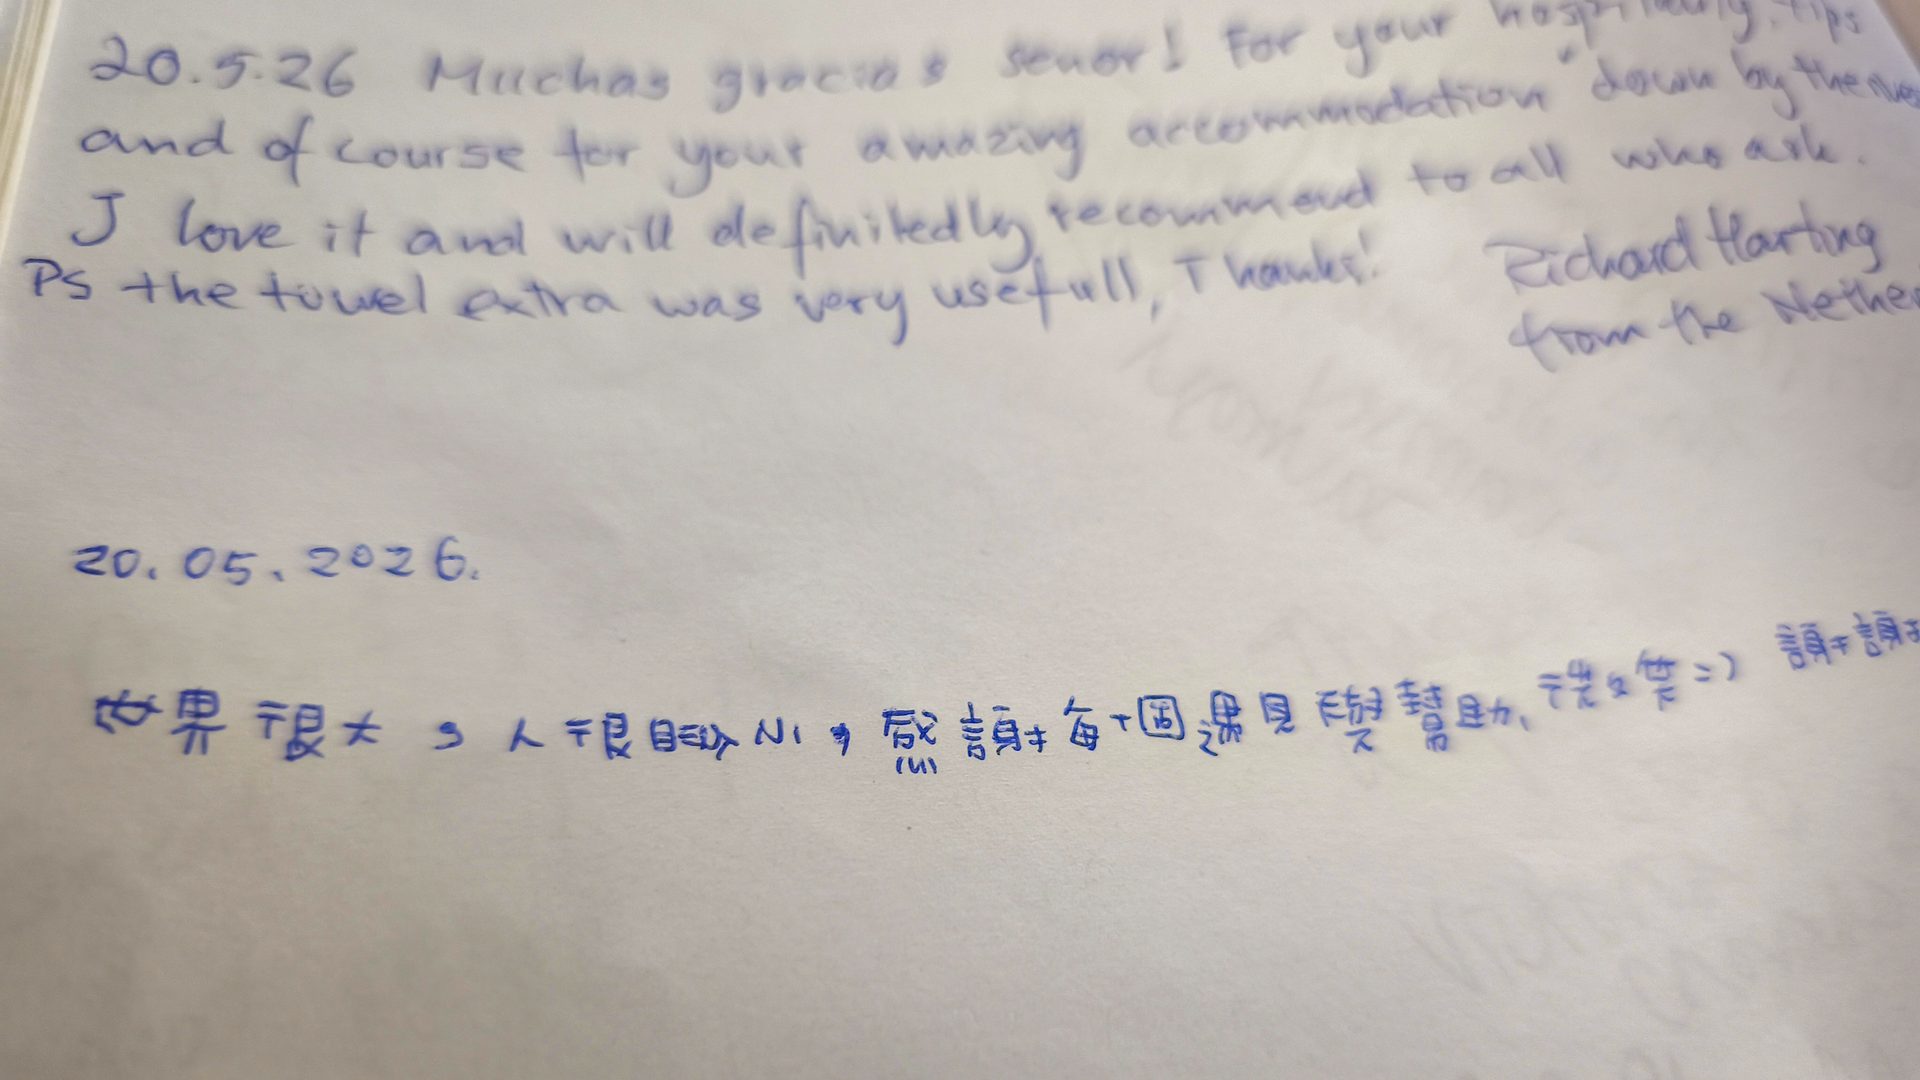 20.5.26 Muchas gracias senor! For your hospitality, tips
and of course for your amazing accommodation "down by the
J love it and will definitedly recommend to all who ask.
PS the towel extra was very usefull, Thanks!
Richard Harting
from the Nether
20.05.2026.
世界很大，人很渺小，感謝每個遇見與幫助、 =) 謝謝